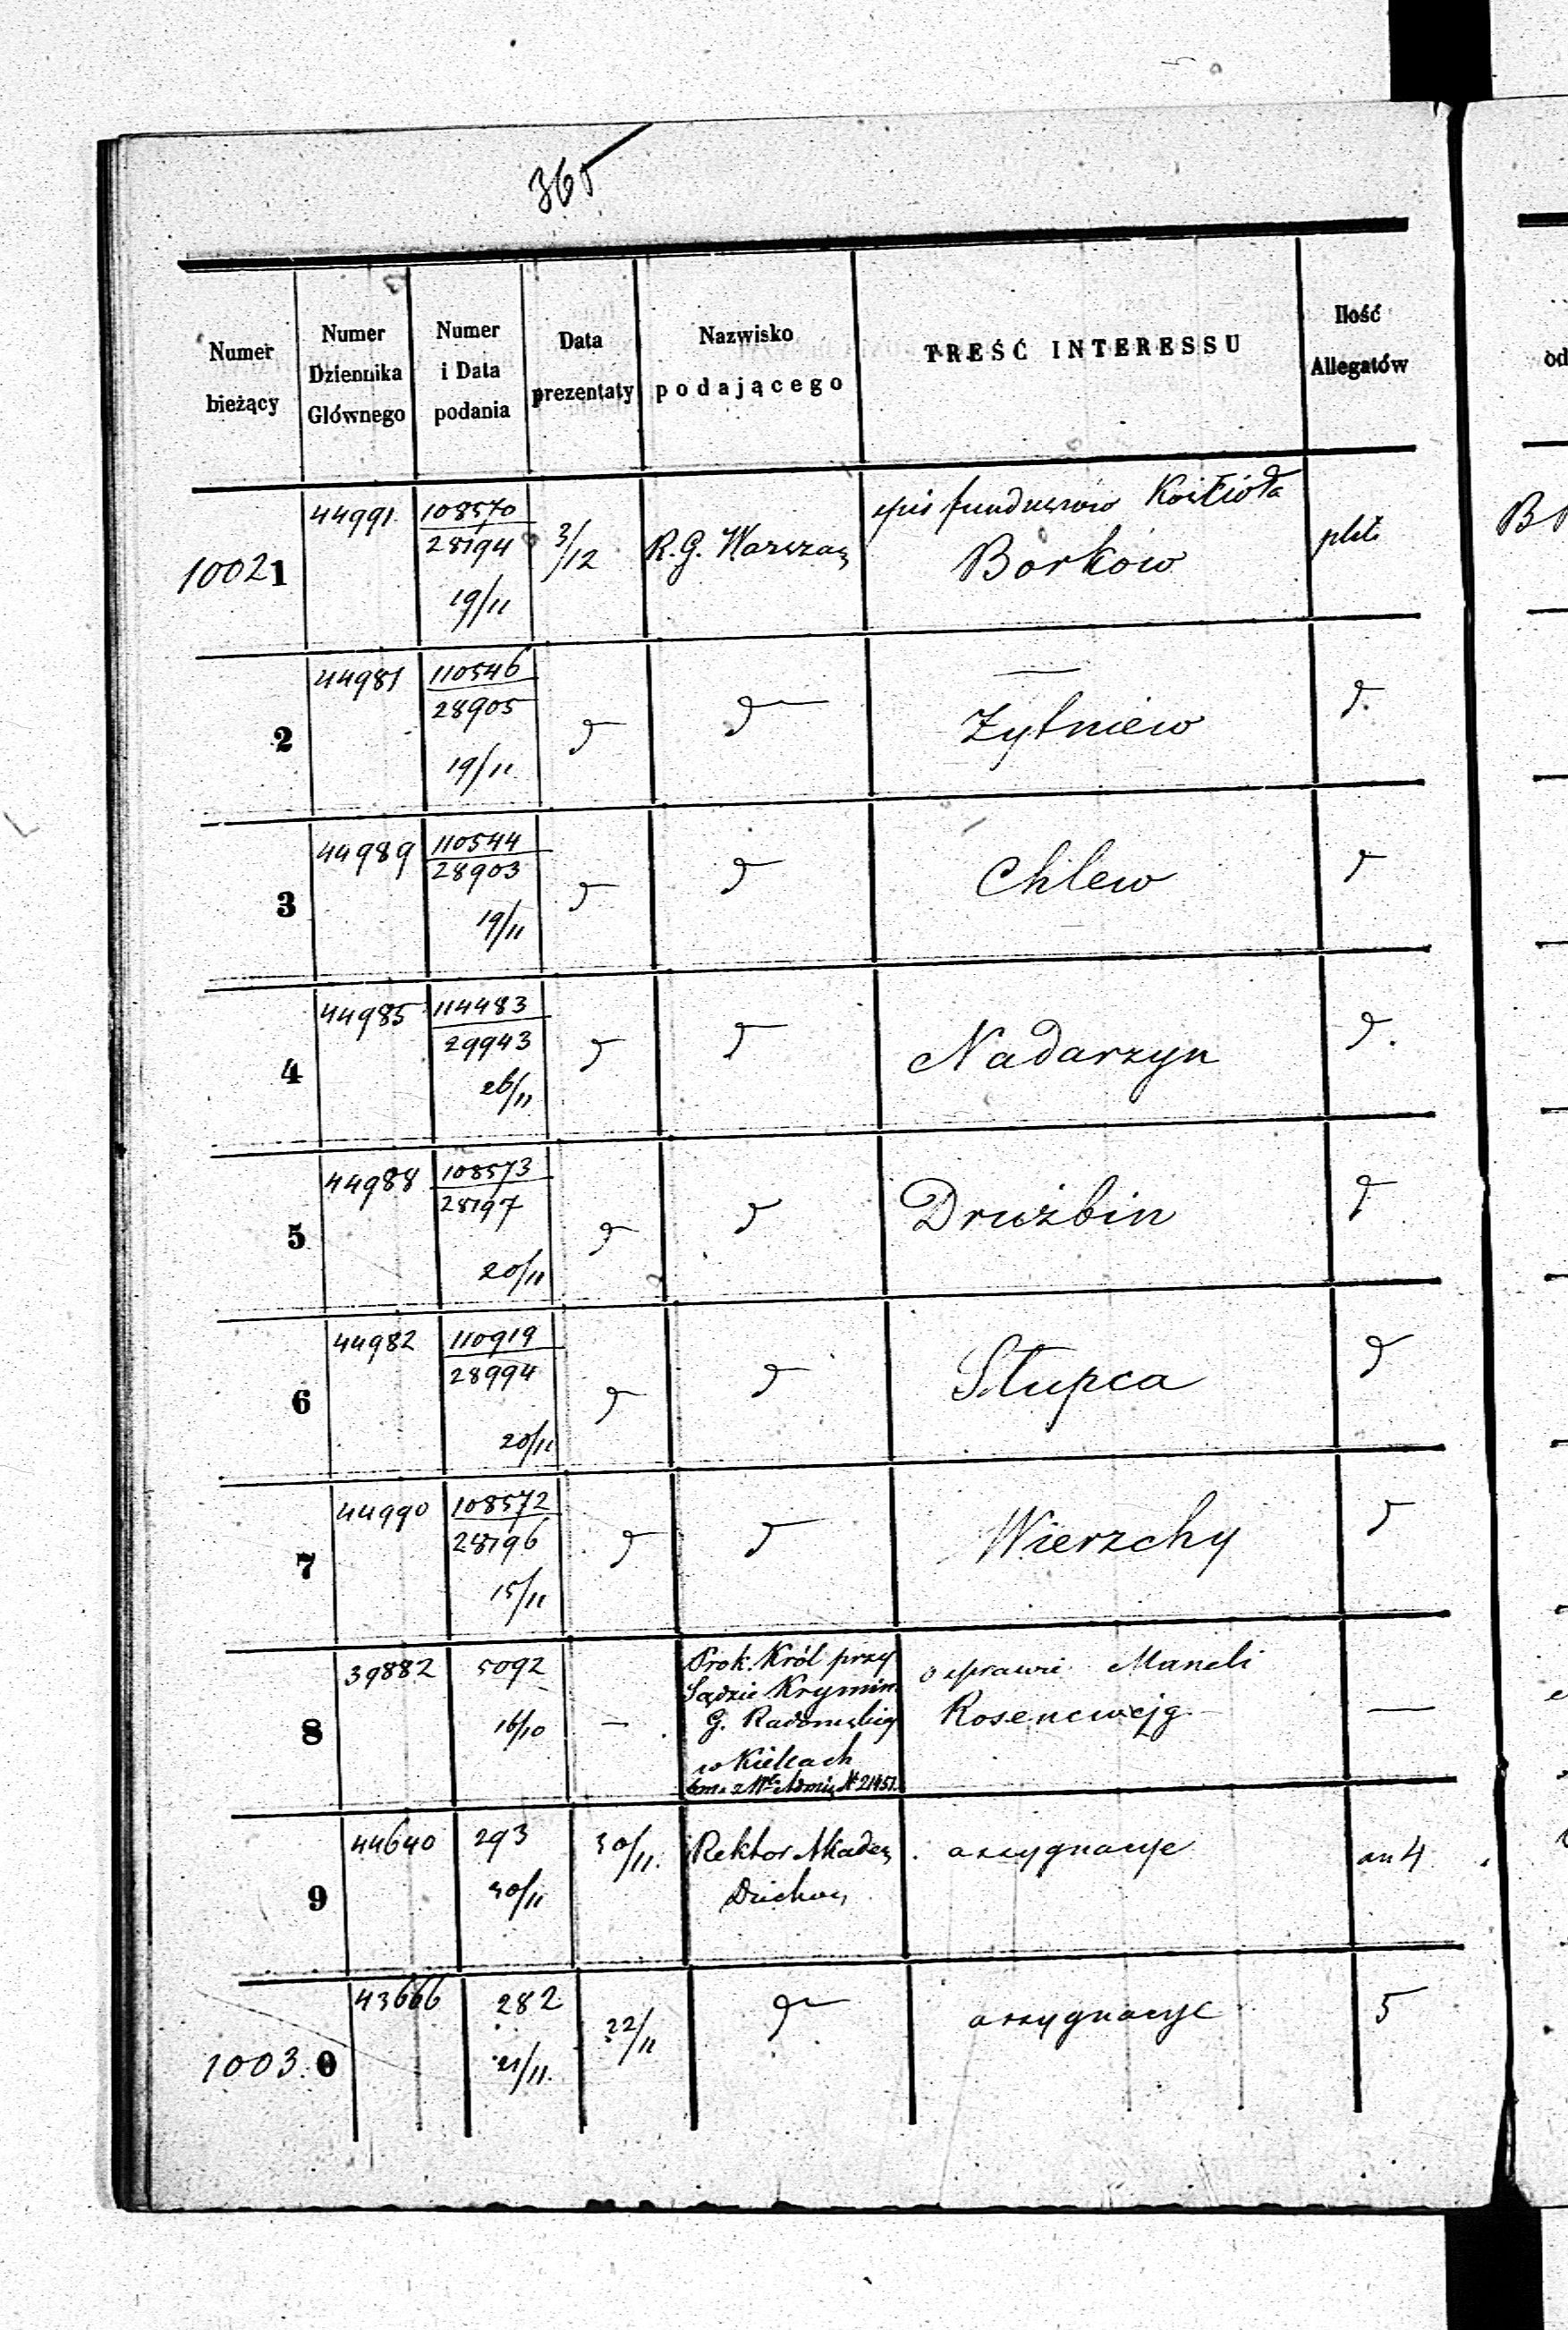 365
Numer bieżący
Numer Dziennika Głównego
Numer i Data podania
Data prezentaty
Nazwisko podającego
TREŚĆ INTERESSU
Ilość Allegatów
10021 44991 108570 3/12 R.G. Warszaw spis funduszów Kościoła
28194 Borków
19/11
2 44981 110546
28905 Żytniew
19/11
3 44989 110544
28903 Chlew
19/11
4 44985 114483
29943 Nadarzyn
26/11
5 44988 108573
28197 Drużbin
20/11
6 44982 110919
28994 Słupca
20/11
7 44990 108572
28196 Wierzchy
15/11
8 39882 5092 — Prok. Król przy o sprawie Maneli —
Sądzie Krymin. Rosencwejg
16/10 G. Radomskiej
w Kielcach
9 44640 293 30/11 Rektor Akadem assygnacye an 4
30/11 Duchow
1003.0 43666 282 22/11 assygnacye 5
21/11